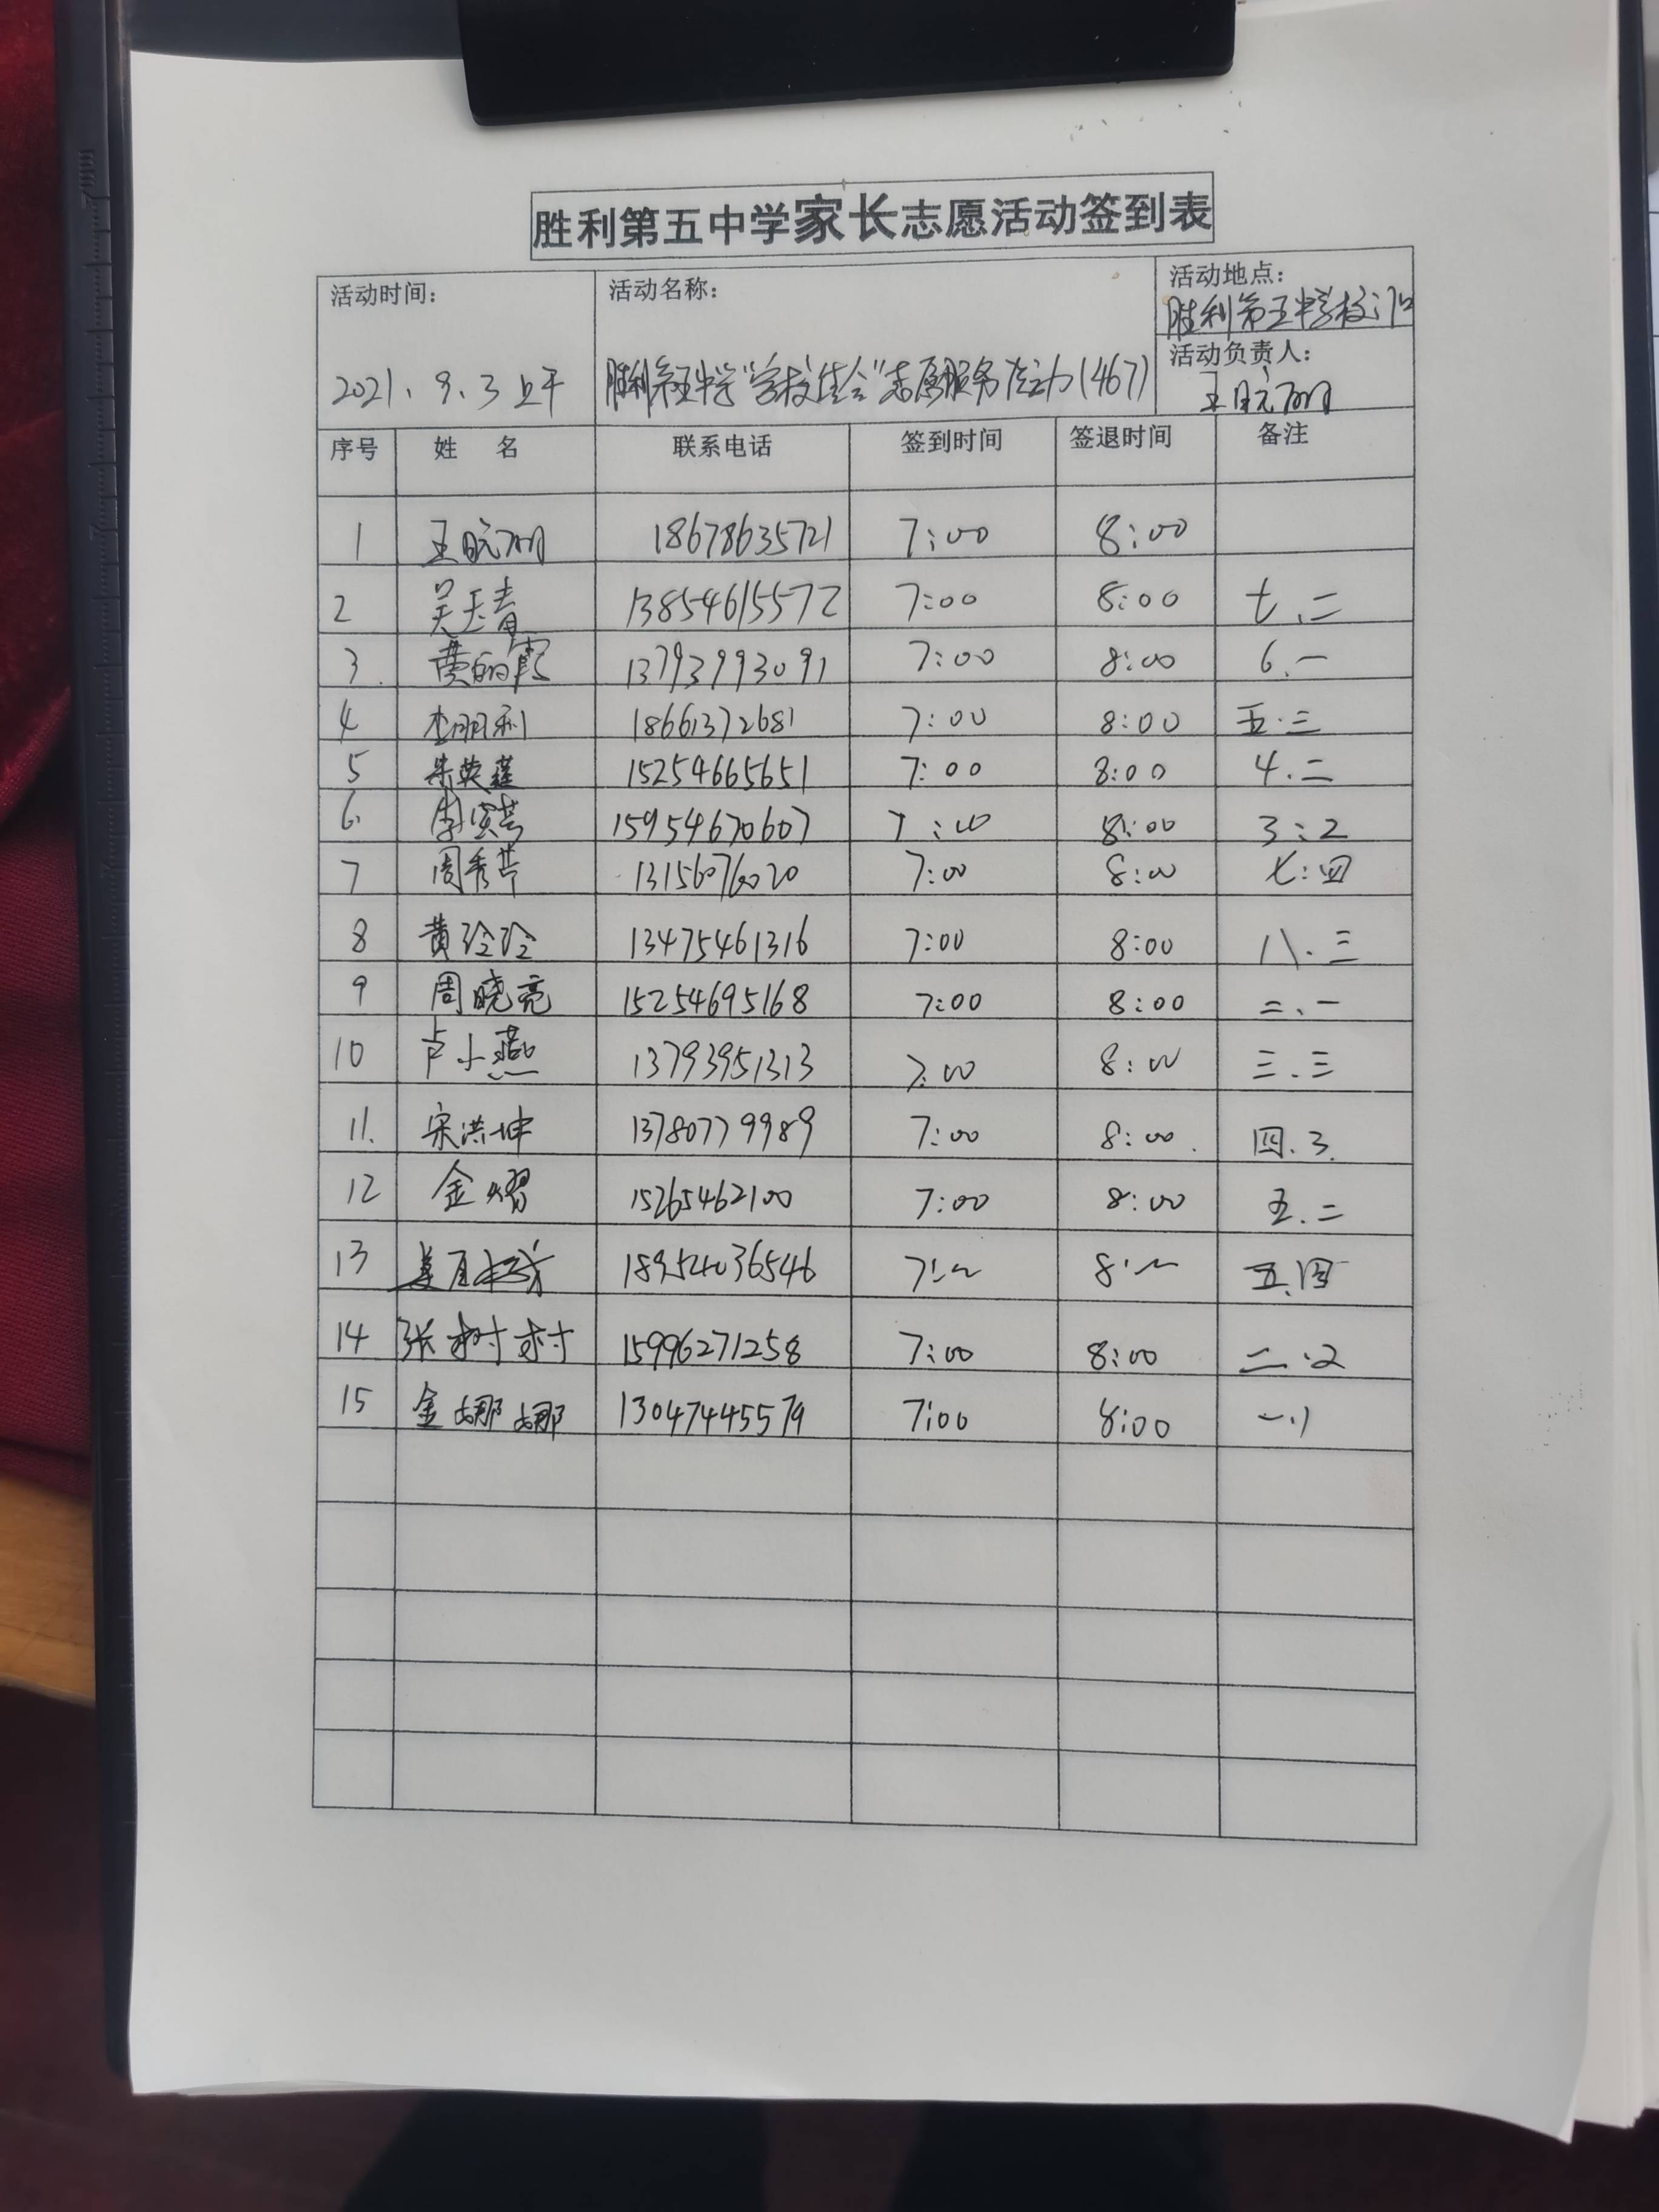 胜利第五中学家长志愿活动签到表
活动时间： 活动名称： 活动地点：
胜利第五中学校门口
活动负责人：
2021.9.3上午 胜利第五中学"学校生会"志愿服务活动(467)
序号 姓 名 联系电话 签到时间 签退时间 备注
1 18678635721 7:00 8:00
2 吴玉青 13854615572 7:00 8:00 七.二
3. 13793993091 7:00 8:00 6.一
4 李明利 18661372681 7:00 8:00 五.三
5 朱英莲 15254665651 7:00 8:00 4.二
6. 15954670607 7:00 8:00 3:2
7 周秀芹 13156076020 7:00 8:00 七:四
8 黄玲玲 13475461316 7:00 8:00 八.三
9 周晓亮 15254695168 7:00 8:00 二、一
10 卢小燕 13793951313 7:00 8:00 三.三
11. 宋洪坤 13780779989 7:00 8:00. 四.3.
12 金熠 15265462100 7:00 8:00 五.二
13 18954036546 7:00 8:00 五.四
14 张树村 15996271258 7:00 8:00 二.2
15 金娜娜 13047445579 7:00 8:00 一.1